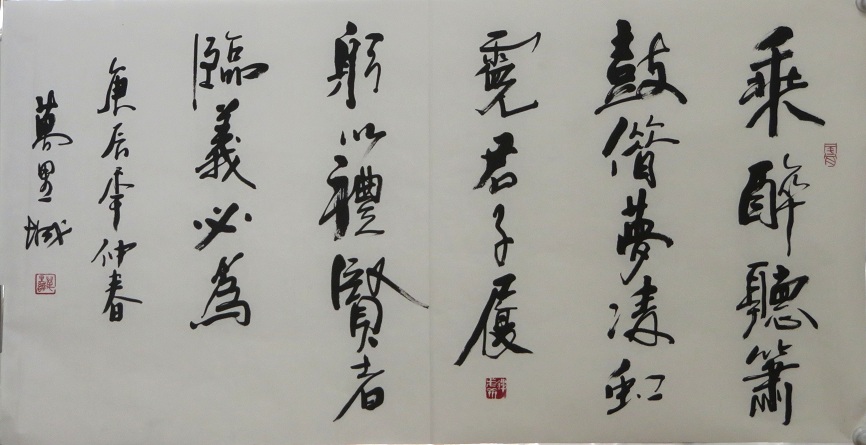 乘醉聽簫
鼓僭夢凌虹
霓君子展
躬以禮賢者
臨義必為
庚辰年仲春
萬里城